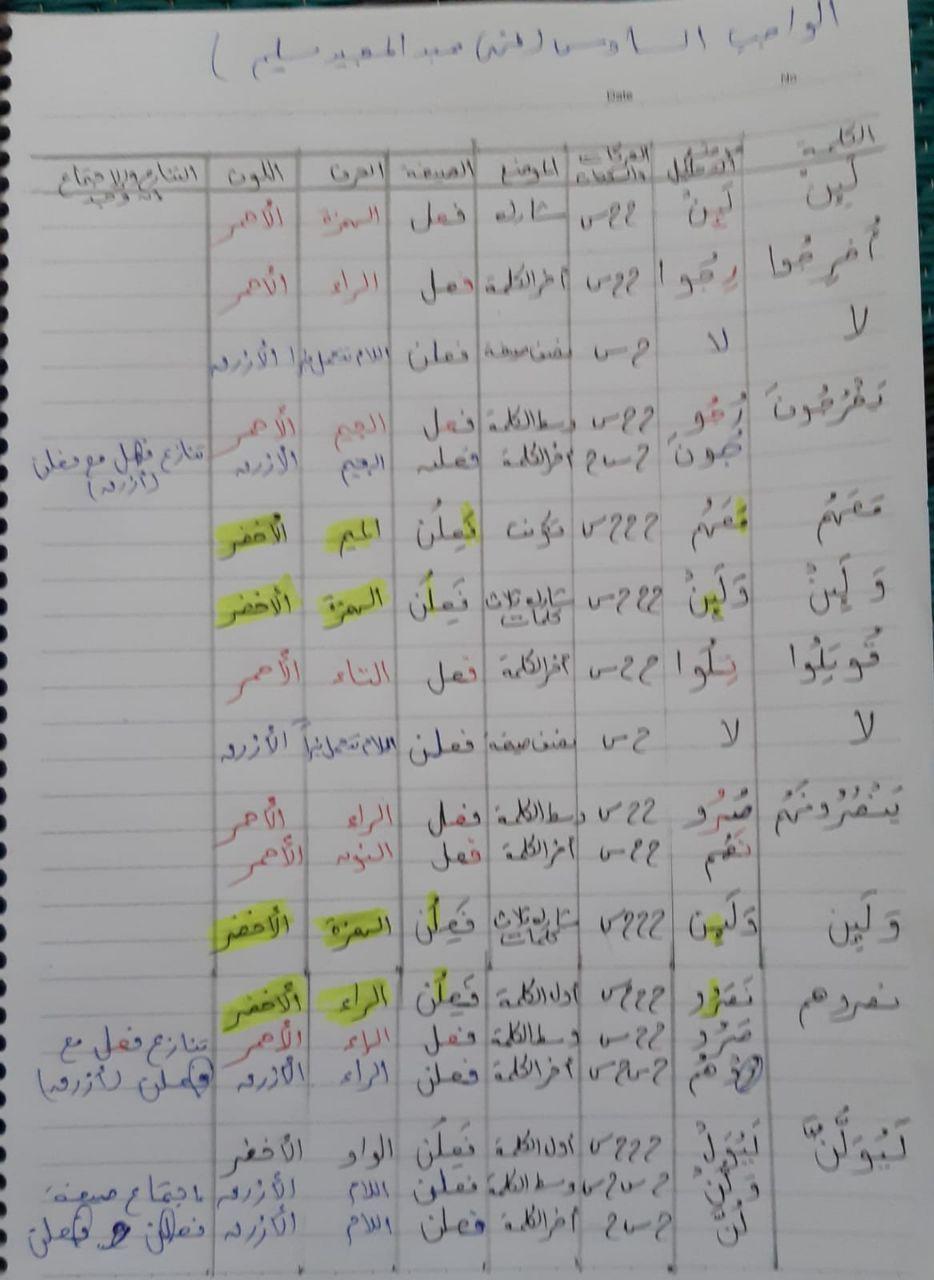 الواجب السادس (منه عبد المجيد سليم)
No
Date
الكلمة موضع التظليل الحركات والسكنات الموضع الصيغة الحرف اللون التنازع والاجتماع
لَئِنْ لَئِنْ دد س شارك فعل الهمزة الأحمر
أُخرِجُوا رِجُوا ددس آخر الكلمة فعل الراء الأحمر
لا لا دس نصف صيغة فعلن اللام الأزرق
يَخْرُجُونَ رُجُو ددس وسط الكلمة فعل الجيم الأحمر
جُونَ دسد آخر الكلمة الجيم الأزرق تنازع فعل مع فعلن (أزرق)
مَعَهُمْ مَعَهُمْ دددس تكونت فَعِلُن الميم الأخضر
وَلَئِنْ وَلَئِنْ دددس شارك ثلاث كلمات فَعِلُن الهمزة الأخضر
قُوتِلُوا تِلُوا ددس آخر الكلمة فعل التاء الأحمر
لا لا دس نصف صيغة فعلن اللام الأزرق
يَنْصُرُونَهُمْ صُرُو ددس وسط الكلمة فعل الراء الأحمر
نَهُم ددس آخر الكلمة فعل النون الأحمر
وَلَئِن وَلَئِن دددس شارك ثلاث كلمات فَعِلُن الهمزة الأخضر
نصروهم نَصَرُو دددس أول الكلمة فَعِلُن الراء الأخضر
صَرُو ددس وسط الكلمة فعل الراء الأحمر تنازع فعل مع
هُمْ دسدس آخر الكلمة فعلن الراء الأزرق فعلن (أزرق)
لَيُوَلُّنَّ لَيُوَلْ دددس أول الكلمة فَعِلُن الواو الأخضر
وَلْلُنْ دسدس وسط الكلمة فعلن اللام الأزرق اجتماع صيغة
لُنَّ دسد آخر الكلمة فعلن اللام الأزرق فعلن و فعلن